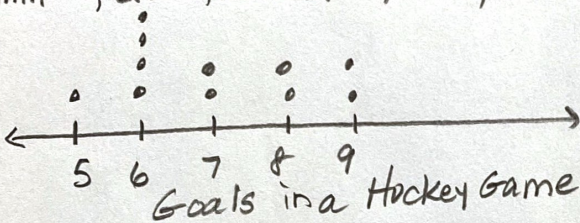 5 6 7 8 9
Goals in a Hockey Game